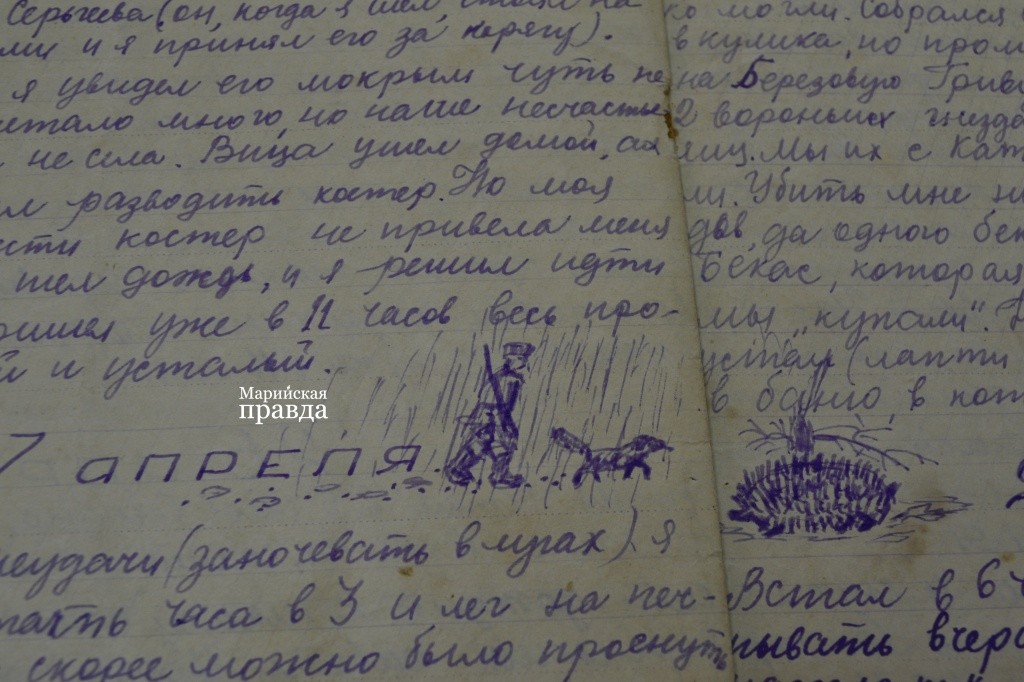 Серьгеева (он, когда я шел, стоял на
ми и я принял его за корягу).
я увидел его мокрым чуть не
летало много, но наше несчастье
не села. Вица ушел домой, а я
ил разводить костер. Но моя
ести костер не привела меня
шел дождь, и я решил идти
ришел уже в 11 часов весь про-
й и усталый.
Марийская
правда
7 АПРЕЛЯ.
неудачи (заночевать в лугах) я
стать часа в 3 и лег на печ-
скорее можно было проснуть
ко могли. Собрался
в кулика, но пром
на Березовую Грив
2 вороньих гнезда
яиц. Мы их с Кат
ли. Убить мне
да одного бек
Бекас, которая
мы „купали“.
устал (лапти
в баню, в кот
Встал в 6 ч
пывать вчера